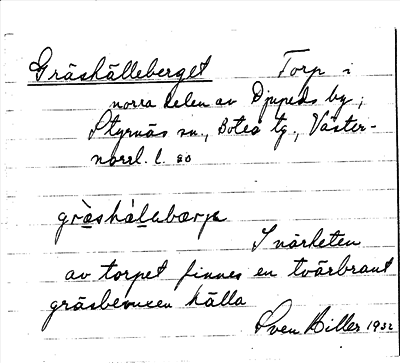 Gräshälleberget Torp i
norra delen av Djupeds by,
Styrnäs sn., Boteå tg., Väster-
norrl. l.
gräshälabærje
I närheten
av torpet finnes en tvärbrant
gräsbevuxen hälla
Sven Biller 1932